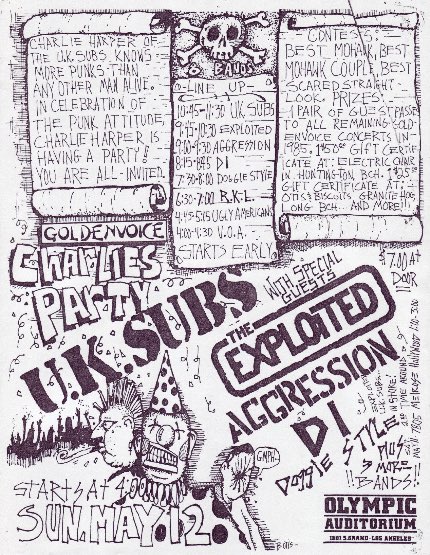 CHARLIE HARPER OF
THE U.K. SUBS KNOWS
MORE PUNKS THAN
ANY OTHER MAN ALIVE.
IN CELEBRATION OF
THE PUNK ATTITUDE,
CHARLIE HARPER IS
HAVING A PARTY!
YOU ARE ALL-INVITED
8 BANDS
LINE UP
10:45-11:30 U.K. SUBS
9:45-10:30 EXPLOITED
9:00-9:30 AGGRESSION
8:15-8:45 DI
7:30-8:00 DOGGIE STYLE
6:30-7:00 R.K.L.
4:45-5:15 UGLY AMERICANS
4:00-4:30 V.O.A.
STARTS EARLY
CONTESTS:
BEST MOHAWK, BEST
MOHAWK COUPLE, BEST
SCARED STRAIGHT
LOOK. PRIZES:
1 PAIR OF GUEST PASSES
TO ALL REMAINING GOLD-
ENVOICE CONCERTS IN
1985, $50.00 GIFT CERTIF
ICATE AT: ELECTRIC CHAIR
IN HUNTINGTON BCH. $25.00
GIFT CERTIFICATE AT:
BISCUITS
LONG BCH. AND MORE!!
GOLDENVOICE
CHARLIES
PARTY
$7.00 AT
DOOR
U.K. SUBS
WITH SPECIAL
GUESTS
THE
EXPLOITED
AGGRESSION
DI
DOGGIE STYLE
PLUS
3 MORE
BANDS!!
EXPLOITED
U.K. SUBS
IN STORE
MELROSE HOLLYWOOD
GMPH-
STARTS AT 4:00
SUN. MAY. 12.
OLYMPIC
AUDITORIUM
1801 S. GRAND - LOS ANGELES